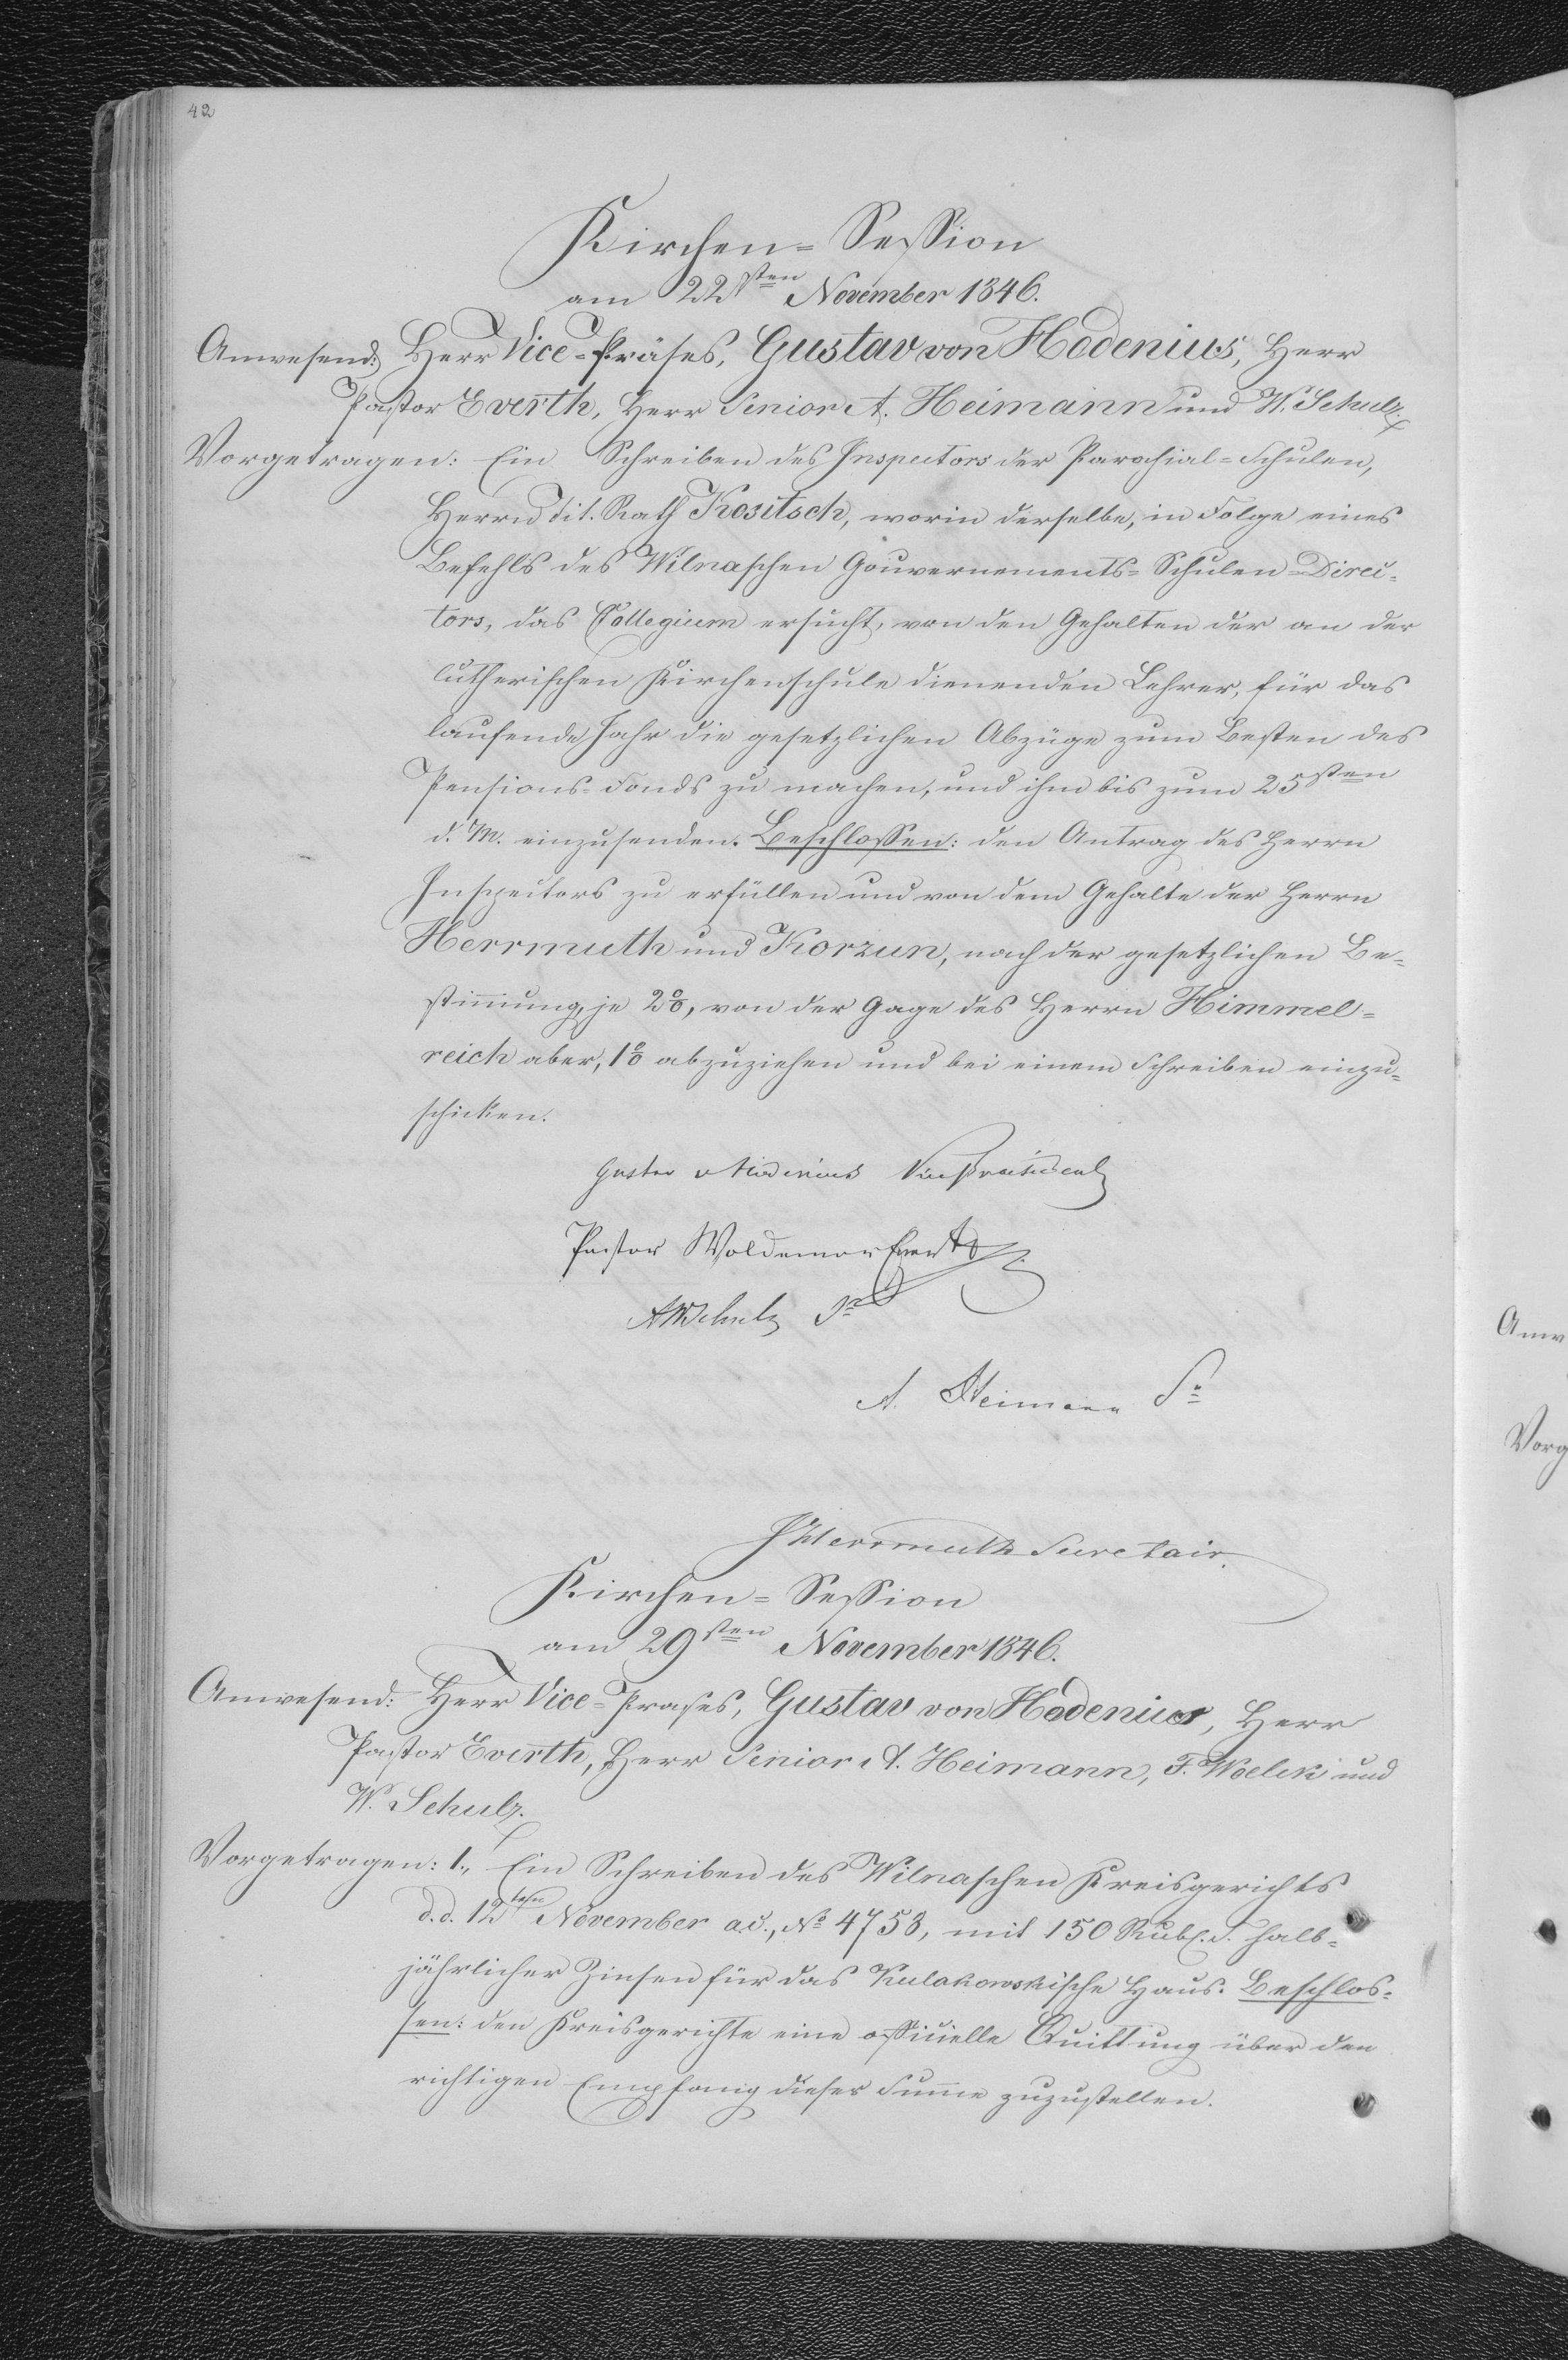 42
Kirchen-Session
am 22sten November 1846.
Anwesend: Herr Vice-Präses, Gustav von Hodenius, Herr
Pastor Everth, Herr Senior A. Heimann und W. Schulz.
Vorgetragen: Ein Schreiben des Inspectors der Parochial-Schulen,
Herrn Tit. Rath Kositsch, worin derselbe, in Folge eines
Befehls des Wilnaschen Gouvernements-Schulen-Direc-
tors, das Collegium ersucht, von den Gehalten der an der
lutherischen Kirchenschule dienenden Lehrer, für das
laufende Jahr die gesetzlichen Abzüge zum Besten des
Pensions-Fonds zu machen, und ihm bis zum 25sten
d. M. einzusenden. Beschlossen: den Antrag des Herrn
Inspectors zu erfüllen und von dem Gehalte der Herrn
Herrmuth und Korzun, nach der gesetzlichen Be-
stimmung, je 2%, von der Gage des Herrn Himmel-
reich aber, 1% abzuziehen und bei einem Schreiben einzu-
schicken.
Gustav v Hodenius Vicepraesident
Pastor Woldemar Everth
AWSchulz Sr
A. Heimann Sr
Herrmuth Secretair.
Kirchen-Session
am 29sten November 1846.
Anwesend: Herr Vice-Präses, Gustav von Hodenius, Herr
Pastor Everth, Herr Senior A. Heimann, F. Woelck und
W. Schulz.
Vorgetragen: 1., Ein Schreiben des Wilnaschen Kreisgerichts
d. d. 12ten November a.c., No 4753, mit 150 Rubl. S. halb-
jährlicher Zinsen für das Kulakowskische Haus. Beschlos-
sen: den Kreisgerichte eine officielle Quittung über den
richtigen Empfang dieser Summe zuzustellen.
Anw
Vorg